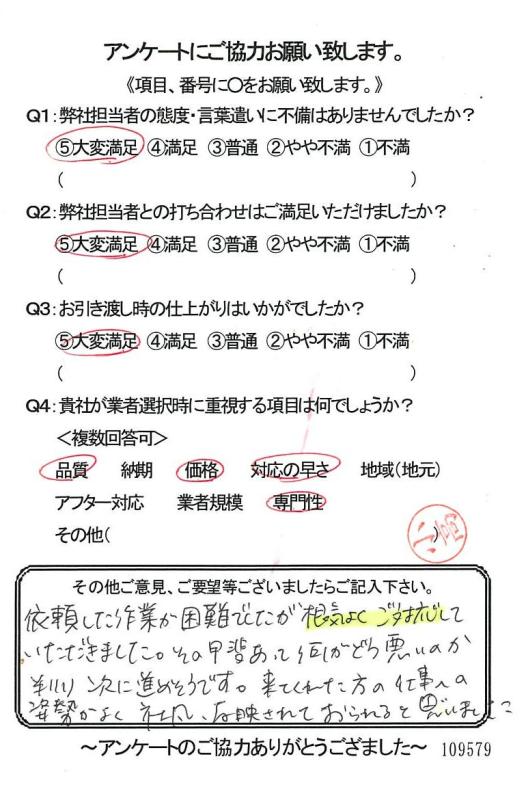 アンケートにご協力お願い致します。
《項目、番号に○をお願い致します。》
Q1:弊社担当者の態度・言葉遣いに不備はありませんでしたか?
⑤大変満足 ④満足 ③普通 ②やや不満 ①不満
( )
Q2:弊社担当者との打ち合わせはご満足いただけましたか?
⑤大変満足 ④満足 ③普通 ②やや不満 ①不満
( )
Q3:お引き渡し時の仕上がりはいかがでしたか?
⑤大変満足 ④満足 ③普通 ②やや不満 ①不満
( )
Q4:貴社が業者選択時に重視する項目は何でしょうか?
<複数回答可>
品質 納期 価格 対応の早さ 地域(地元)
アフター対応 業者規模 専門性
その他( )
その他ご意見、ご要望等ございましたらご記入下さい。
依頼した作業が困難でしたが根気よくご対応して
いただきました。その甲斐あって何がどう悪いのか
判り 次に進めそうです。来てくれた方の仕事への
姿勢がよく 社風、反映されておられると思いました
~アンケートのご協力ありがとうござました~ 109579